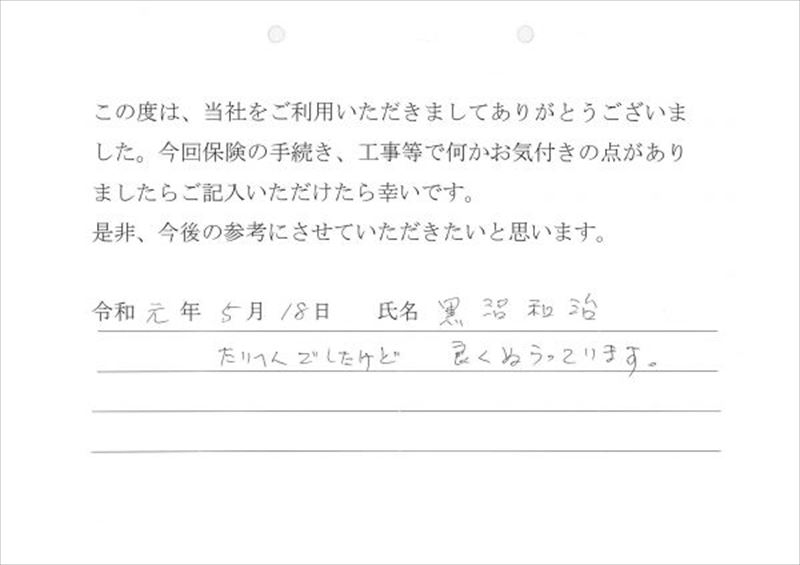 この度は、当社をご利用いただきましてありがとうございま
した。今回保険の手続き、工事等で何かお気付きの点があり
ましたらご記入いただけたら幸いです。
是非、今後の参考にさせていただきたいと思います。
令和 元 年 5 月 18 日 氏名 黒沼和治
たいへんでしたけど 良くぬうっております。